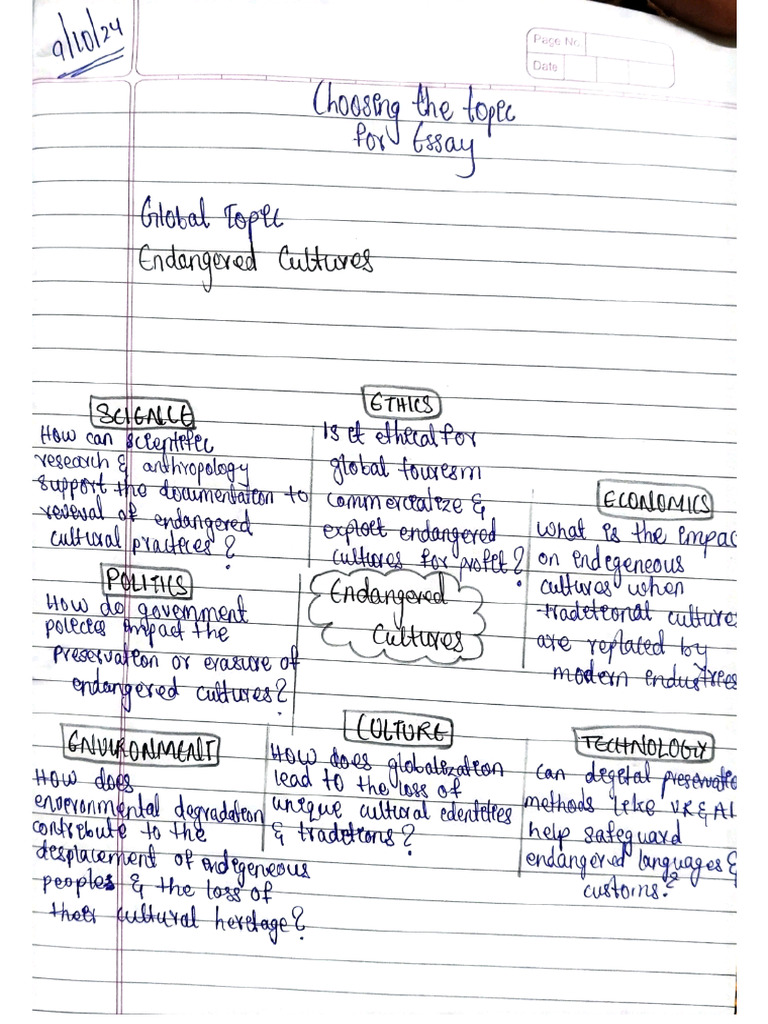 9/10/24
Page No
Date
Choosing the topic
for Essay
Global Topic
Endangered Cultures
SCIENCE
How can scientific
research & anthropology
support the documentation to
revival of endangered
cultural practices?
ETHICS
Is it ethical for
global tourism
commercialize &
exploit endangered
cultures for profit?
ECONOMICS
what is the impac
on indigeneous
cultures when
traditional cultures
are replaced by
modern industries
POLITICS
How do government
policies impact the
preservation or erasure of
endangered cultures?
Endangered
Cultures
ENVIRONMENT
How does
environmental degradation
contribute to the
displacement of indigeneous
peoples & the loss of
their cultural heritage?
CULTURE
How does globalization
lead to the loss of
unique cultural identities
& traditions?
TECHNOLOGY
can digital preservatio
methods like VR & AI
help safeguard
endangered languages &
customs?